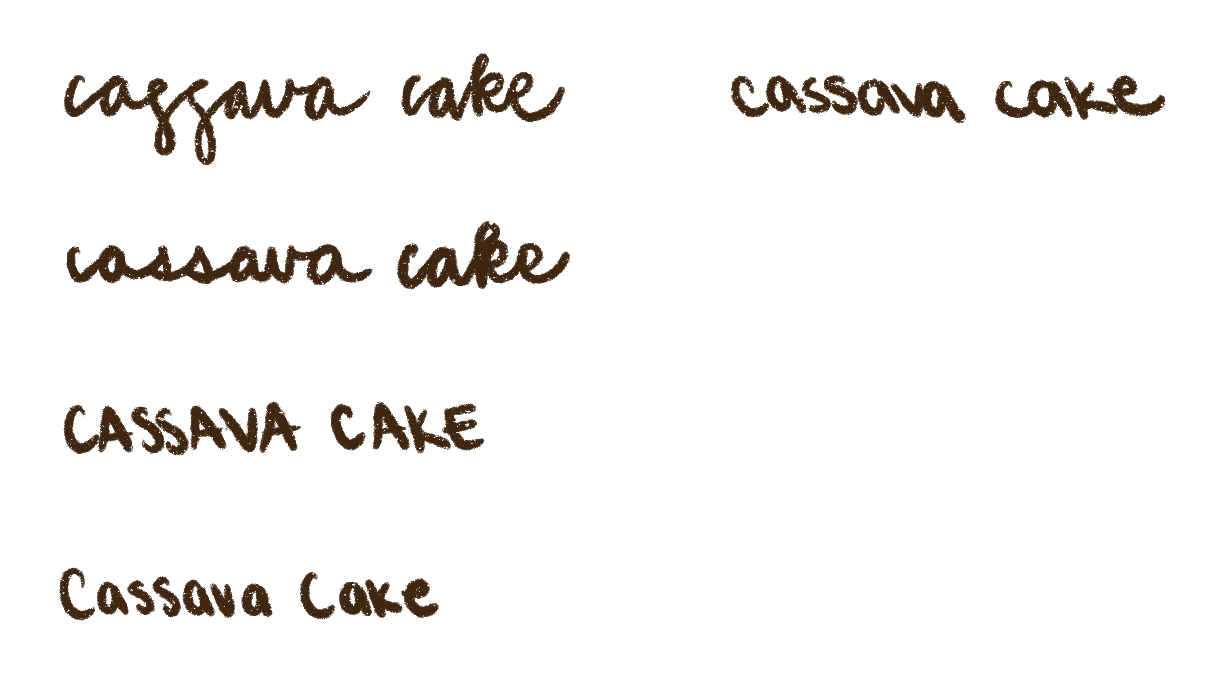 caggava cake
cassava cake
cassava cake
CASSAVA CAKE
Cassava Cake